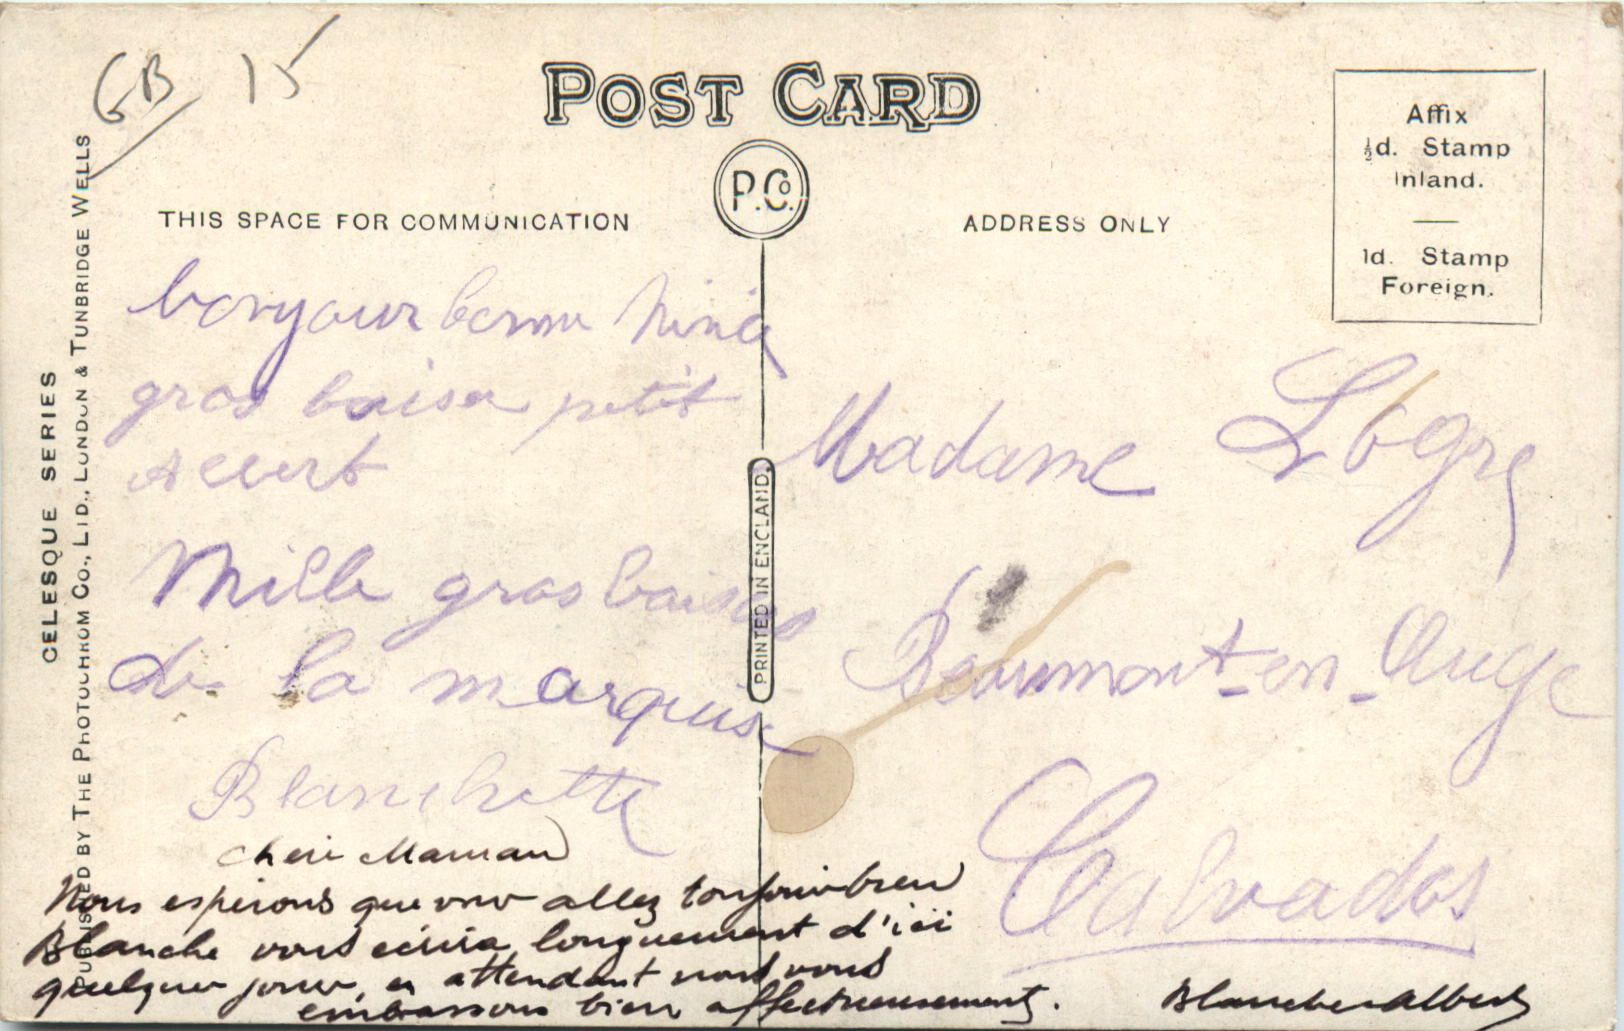 GB 15
POST CARD
P.Co.
THIS SPACE FOR COMMUNICATION
ADDRESS ONLY
Affix
½d. Stamp
Inland.
1d. Stamp
Foreign.
CELESQUE SERIES
PUBLISHED BY THE PHOTOCHROM CO., LTD., LONDON & TUNBRIDGE WELLS
PRINTED IN ENGLAND.
bonjour bonne Ninie
gros baiser petit
Albert
Mille gros baisers
de la marquise
Blanchette
Madame Logre
Beaumont-en-Auge
Calvados
Chère Maman
Nous espérons que vous allez toujours bien
Blanche vous écrira longuement d'ici
quelques jours, en attendant nous vous
embrassons bien affectueusement.
Blanche Albert